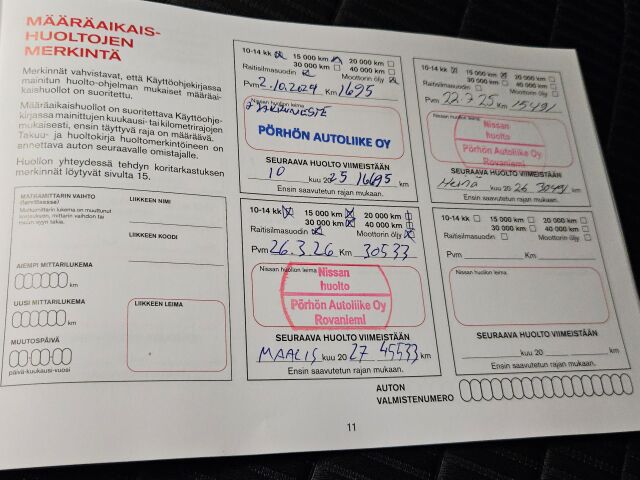 MÄÄRÄAIKAIS-
HUOLTOJEN
MERKINTÄ
Merkinnät vahvistavat, että Käyttöohjekirjassa
mainitun huolto-ohjelman mukaiset määräai-
kaishuollot on suoritettu.
Määräaikaishuollot on suoritettava Käyttöohje-
kirjassa mainittujen kuukausi- tai kilometrirajojen
mukaisesti, ensin täyttyvä raja on määräävä.
Takuu- ja huoltokirja huoltomerkintöineen on
annettava auton seuraavalle omistajalle.
Huollon yhteydessä tehdyn koritarkastuksen
merkinnät löytyvät sivulta 15.
MATKAMITTARIN VAIHTO
(tarvittaessa)
Matkamittarin lukema on muuttunut
korjauksen, mittarin vaihdon tai
muun syyn takia.
LIIKKEEN NIMI
LIIKKEEN KOODI
AIEMPI MITTARILUKEMA
km
UUSI MITTARILUKEMA
km
MUUTOSPÄIVÄ
päivä-kuukausi-vuosi
LIIKKEEN LEIMA
10-14 kk 15 000 km 20 000 km
30 000 km 40 000 km
Raitisilmasuodin Moottorin öljy
Pvm 2.10.2024 Km 1695
Nissan huollon leima
PÖRHÖN AUTOLIIKE OY
SEURAAVA HUOLTO VIIMEISTÄÄN
10 kuu 20 25 16695 km
Ensin saavutetun rajan mukaan.
10-14 kk 15 000 km 20 000 km
30 000 km 40 000 km
Raitisilmasuodin Moottorin öljy
Pvm 22.7.25 Km 15491
Nissan huollon leima
Nissan
huolto
Pörhön Autoliike Oy
Rovaniemi
SEURAAVA HUOLTO VIIMEISTÄÄN
Heinä kuu 20 26 30491 km
Ensin saavutetun rajan mukaan.
10-14 kk 15 000 km 20 000 km
30 000 km 40 000 km
Raitisilmasuodin Moottorin öljy
Pvm 26.3.26 Km 30533
Nissan huollon leima
Nissan
huolto
Pörhön Autoliike Oy
Rovaniemi
SEURAAVA HUOLTO VIIMEISTÄÄN
MAALIS kuu 20 27 45533 km
Ensin saavutetun rajan mukaan.
10-14 kk 15 000 km 20 000 km
30 000 km 40 000 km
Raitisilmasuodin Moottorin öljy
Pvm Km
Nissan huollon leima
SEURAAVA HUOLTO VIIMEISTÄÄN
kuu 20 km
Ensin saavutetun rajan mukaan.
AUTON
VALMISTENUMERO
11